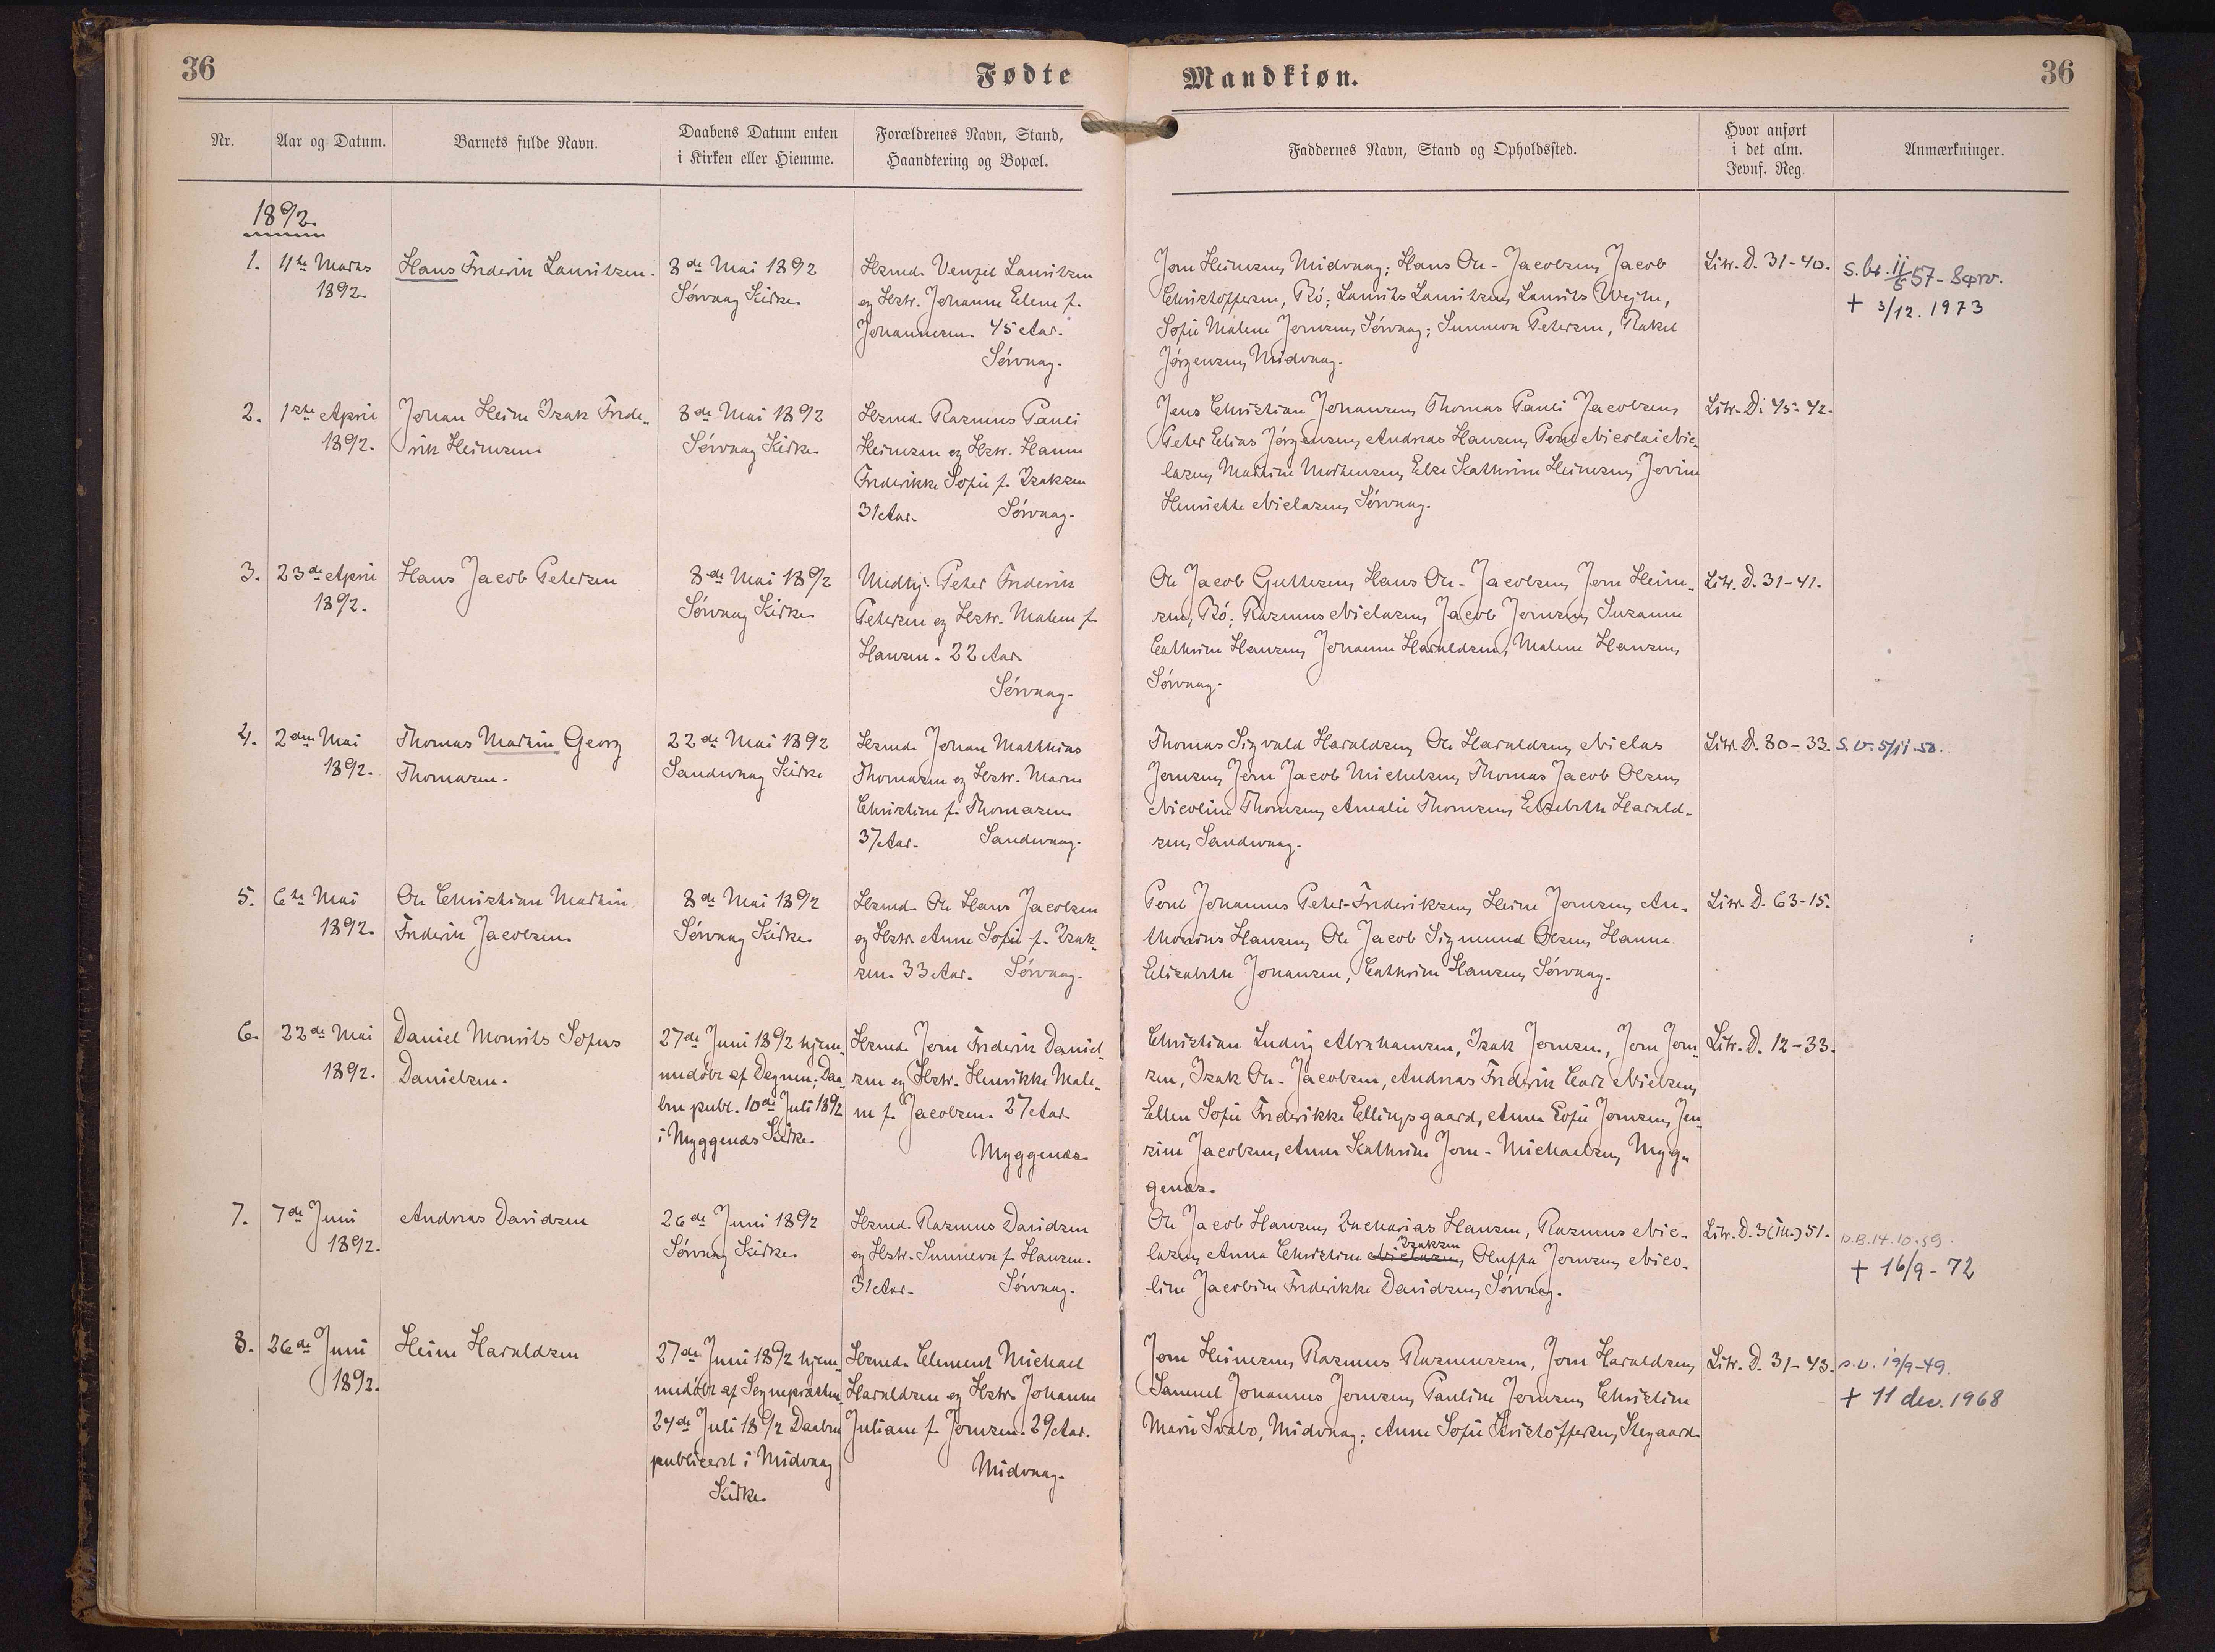 36
Fødte
Mandkiøn.
36
Nr.
Aar og Datum.
Barnets fulde Navn.
Daabens Datum enten
i Kirken eller Hiemme.
Forældrenes Navn, Stand,
Haandtering og Bopæl.
Faddernes Navn, Stand og Opholdssted.
Hvor anført
i det alm.
Jevnf. Reg.
Anmærkninger.
1892.
1.
4de Marts
1892.
Hans Frederik Lauritzen.
8de Mai 1892
Sórvaag Kirke.
Hsmd. Venzel Lauritzen
og Hstr. Johanne Elene f.
Johannesen. 45 Aar.
Sórvaag.
Joen Heinesen, Midvaag; Hans Ole-Jacobsen, Jacob
Christoffersen, Bó; Laurits Lauritzen, Laurits Wejhe,
Sofie Malene Joensen, Sórvaag; Sunneva Petersen, Rakel
Jørgensen, Midvaag.
Litr. D. 31-40.
+ 3/12. 1973
2.
1ste April
1892.
Johan Heine Isak Frede-
rik Heinesen.
8de Mai 1892
Sórvaag Kirke.
Hsmd. Rasmus Pauli
Heinesen og Hstr. Hanne
Frederikke Sofie f. Isaksen
31 Aar. Sórvaag.
Jens Christian Johansen, Thomas Pauli Jacobsen,
Peter Elias Jørgensen, Andreas Hansen, Poul Nicolai Nic-
lasen, Martine Mortensen, Else Kathrine Heinesen, Jovine
Henriette Niclasen, Sórvaag.
Litr. D. 45-42.
3.
23de April
1892.
Hans Jacob Petersen
8de Mai 1892
Sórvaag Kirke.
Medhj. Peter Frederik
Petersen og Hstr. Malene f.
Hansen. 22 Aar
Sórvaag.
Ole Jacob Guttesen, Hans Ole-Jacobsen, Joen Heine-
sen, Bó; Rasmus Niclasen, Jacob Joensen, Susanne
Cathrine Hansen, Johanne Haraldsen, Malene Hansen,
Sórvaag.
Litr. D. 31-41.
4.
2den Mai
1892.
Thomas Martin Georg
Thomasen.
22de Mai 1892
Sandevaag Kirke
Hsmd. Johan Matthias
Thomasen og Hstr. Maren
Christine f. Thomasen.
37 Aar. Sandevaag.
Thomas Sigvald Haraldsen, Ole Haraldsen, Niclas
Joensen, Joen Jacob Michelsen, Thomas Jacob Olsen,
Nicoline Thomsen, Amalie Thomsen, Elsebeth Harald-
sen, Sandevaag.
Litr. D. 80-33.
S. v. 5/11-50.
5.
6te Mai
1892.
Ole Christian Martin
Frederik Jacobsen.
8de Mai 1892
Sórvaag Kirke.
Hsmd. Ole Hans Jacobsen
og Hstr. Anne Sofie f. Isak-
sen. 33 Aar. Sórvaag.
Poul Johannes Peter-Frederiksen, Heine Joensen, An-
thonius Hansen, Ole Jacob Sigmund Olsen, Hanne
Elisabeth Johansen, Cathrine Hansen, Sórvaag.
Litr. D. 63-15.
6.
22de Mai
1892.
Daniel Mourits Sofus
Danielsen.
27de Juni 1892 hjem-
medøbt af Degnen; Daa-
ben publ. 10de Juli 1892
i Myggenæs Kirke.
Hsmd. Joen Frederik Daniel-
sen og Hstr. Henrikke Male-
ne f. Jacobsen. 27 Aar.
Myggenæs.
Christian Ludvig Abrahamsen, Isak Joensen, Joen Joen-
sen, Isak Ole-Jacobsen, Andreas Frederik Carl Nielsen,
Ellen Sofie Frederikke Ellingsgaard, Anne Sofie Joensen, Jen-
sine Jacobsen, Anna Kathrine Joen-Michaelsen, Myg-
genæs.
Litr. D. 12-33.
7.
7de Juni
1892.
Andreas Davidsen
26de Juni 1892
Sórvaag Kirke.
Hsmd. Rasmus Davidsen
og Hstr. Sunneva f. Hansen.
31 Aar. Sórvaag.
Ole Jacob Hansen, Zacharias Hansen, Rasmus Nic-
Isaksen
lasen, Anna Christine Niclasen, Oluffa Joensen, Nico-
line Jacobine Frederikke Davidsen, Sórvaag.
Litr. D. 3(Th.)51.
D.B. 14.10.59.
+ 16/9-72
8.
26de Juni
1892.
Heine Haraldsen
27de Juni 1892 hjem-
medøbt af Sognepræsten
24de Juli 1892 Daaben
publiceret i Midvaag
Kirke.
Hsmd. Clement Michael
Haraldsen og Hstr. Johanne
Juliane f. Joensen. 29 Aar.
Midvaag.
Joen Heinesen, Rasmus Rasmussen, Joen Haraldsen,
Samuel Johannes Joensen, Pauline Joensen, Christine
Marie Svabo, Midvaag; Anne Sofie Kristoffersen, Stegaard.
Litr. D. 31-43.
s.v. 19/9-49.
+ 11 dec. 1968